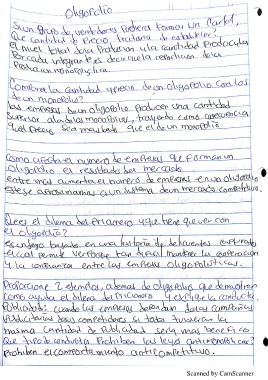 Oligopolio
Si un grupo de vendedores pudiera formar un cartel,
que cantidad y precio trataria de establecer?
el nivel total de la produccion y la cantidad producida
por cada integrante es decir que la
produccion monopolistica.
Compara la cantidad y precio de un oligopolio con los
de un monopolio?
las empresas de un oligopolio producen una cantidad
superior a la de los monopolios, trayendo como consecuencia
que el precio sea mas bajo que el de un monopolio
Como afecta el numero de empresas que forman un
oligopolio es resultado del mercado
entre mas aumenta el numero de empresas en un oligopolio
este se aproxima a un sistema de un mercado competitivo.
Que es el dilema del prisionero y que tiene que ver con
el oligopolio?
es un juego basado en una historia de delincuentes
el cual permite ver por que tan dificil mantener la cooperacion
y la confianza entre las empresas oligopolisticas.
Proporcione 2 ejemplos, ademas de oligopolio que demuestren
como ayuda el dilema del prisionero a explicar la conducta.
Publicidad: cuando las empresas campañas
publicitarias los competidores si todos tuvieran la
misma cantidad de publicidad seria mas benefico
que tipo de conducta prohiben las leyes antimonopolicas?
Prohiben el comportamiento anticompetitivo.
Scanned by CamScanner